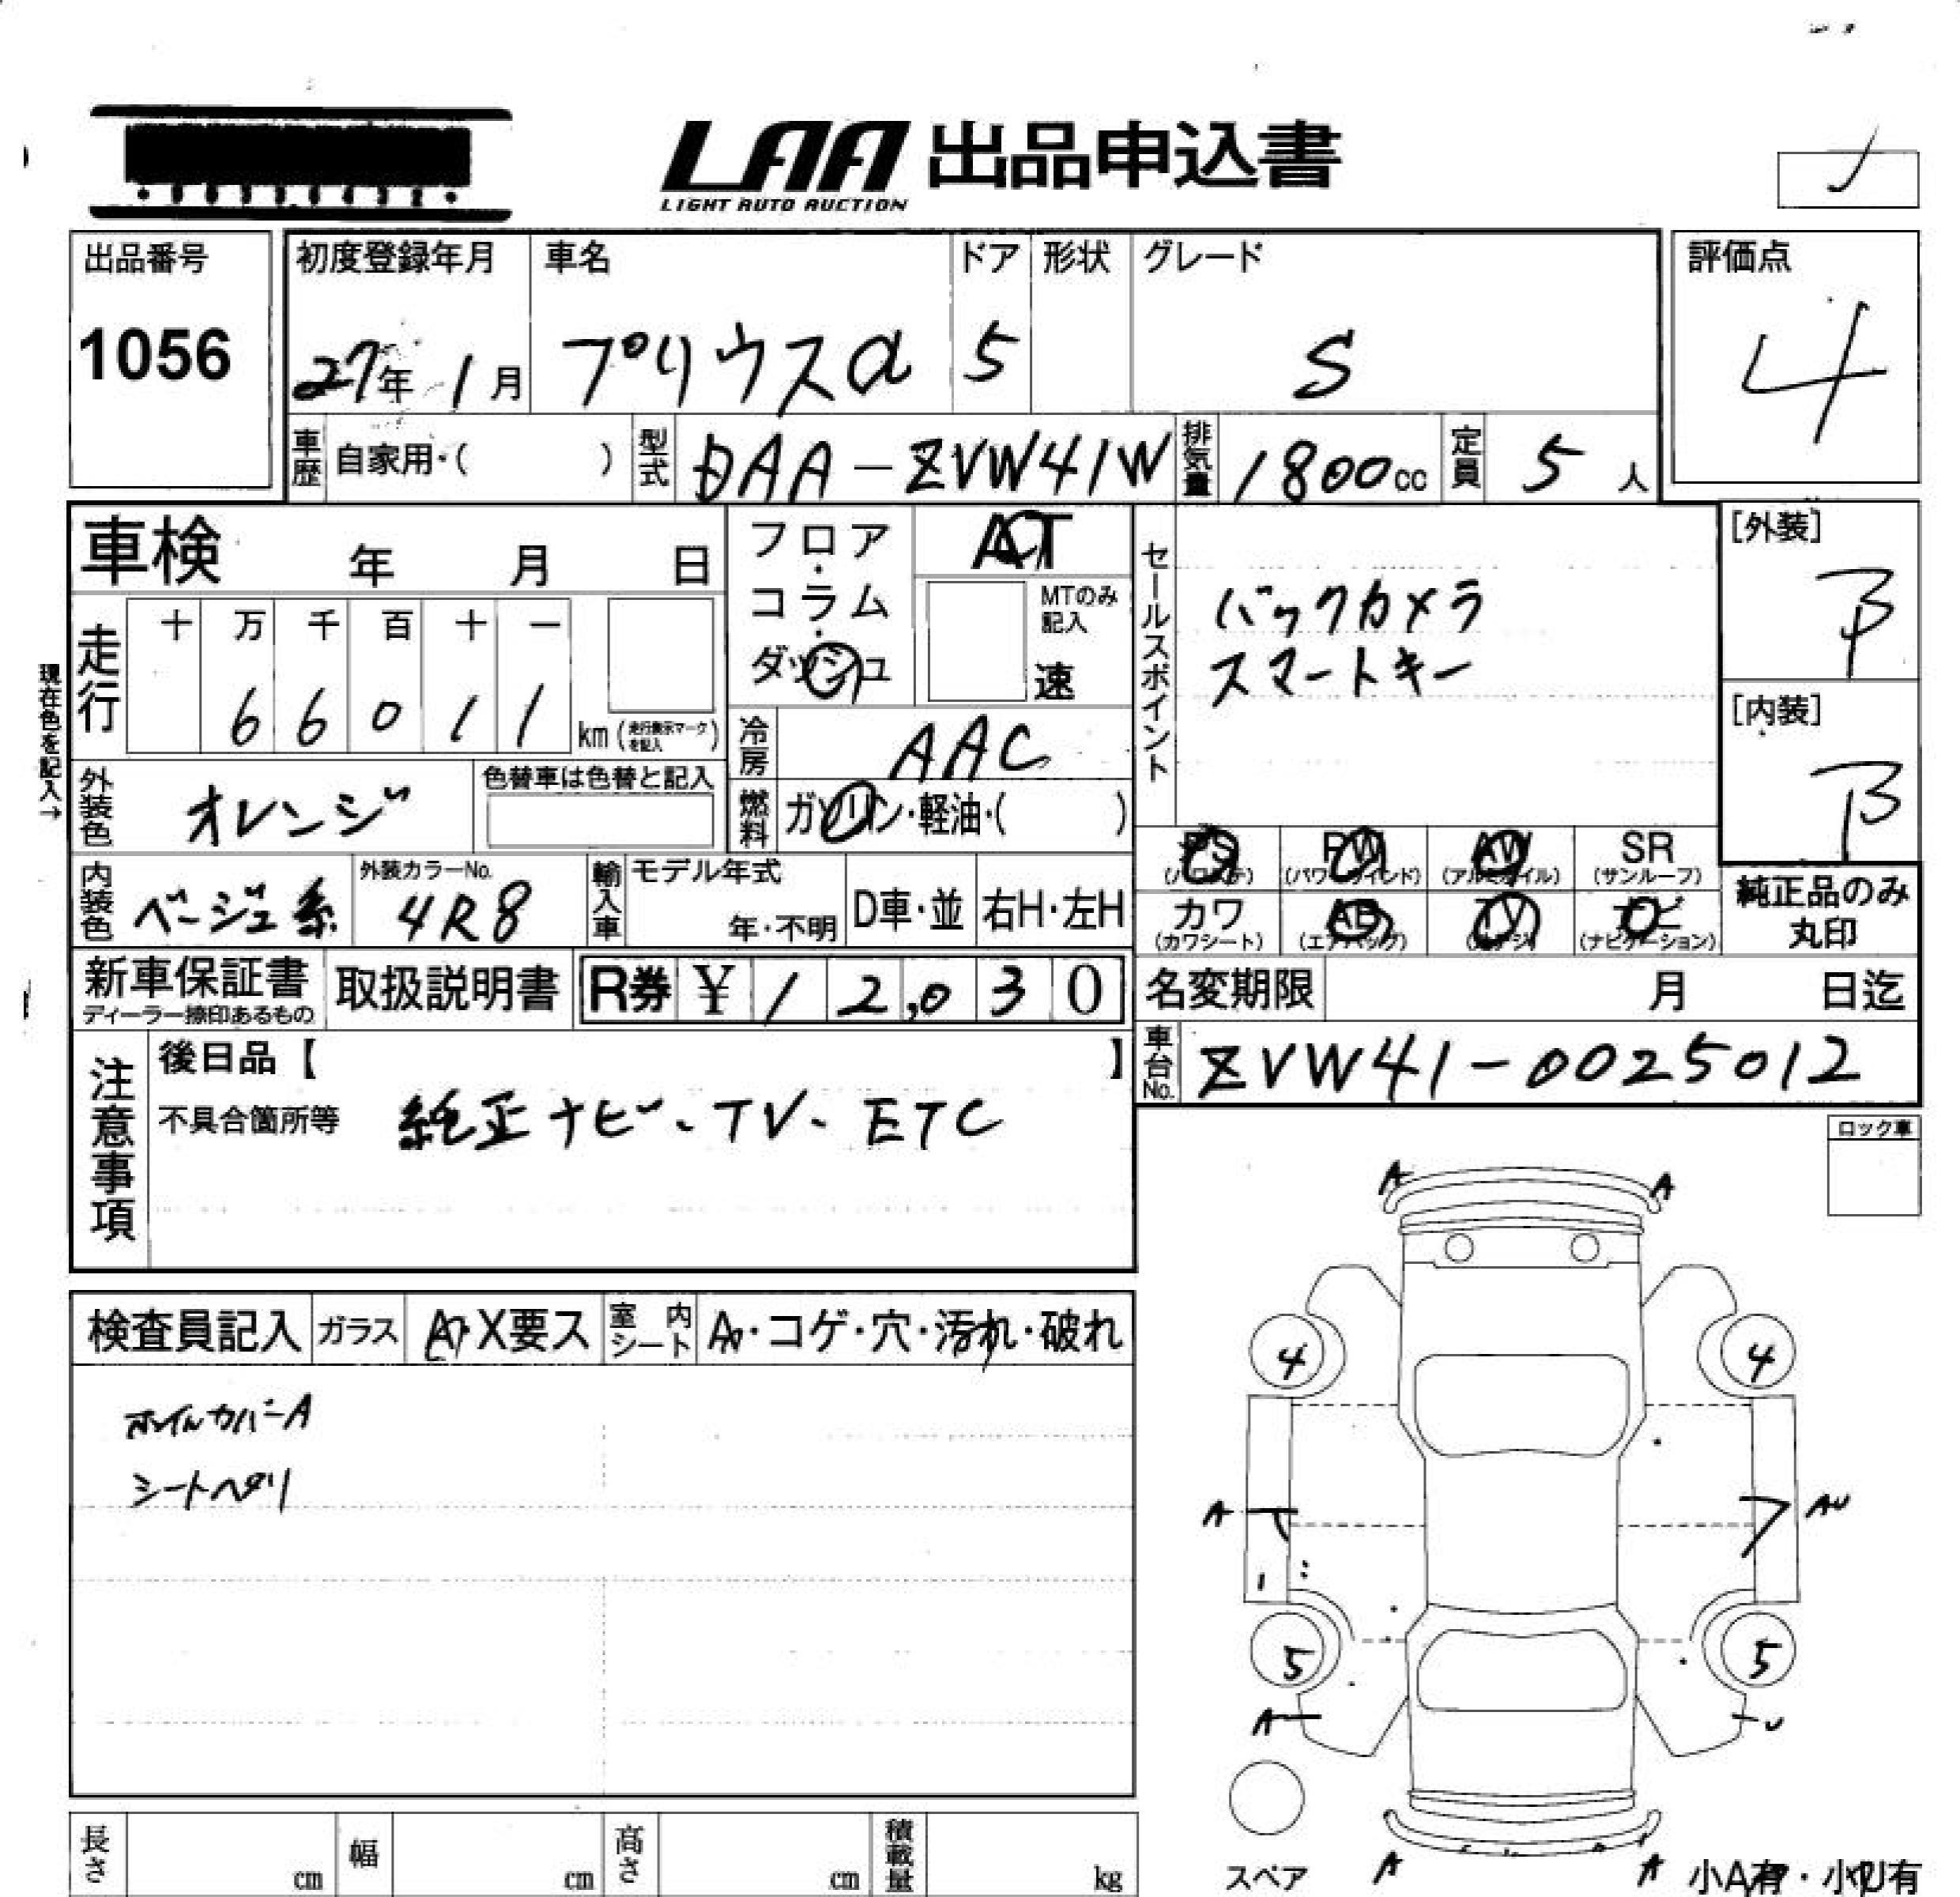 LAA 出品申込書
LIGHT AUTO AUCTION
出品番号
1056
初度登録年月 車名 ドア 形状 グレード
27年 1月 プリウスα 5 S
評価点
4
車歴 自家用・( ) 型式 DAA-ZVW41W 排気量 1800cc 定員 5人
車検 年 月 日
フロア・コラム・ダッシュ
AT
MTのみ記入
速
走行 十 万 千 百 十 一
6 6 0 1 1 km (走行表示マークを記入)
現在色を記入→
冷房 AAC
燃料 ガソリン・軽油・( )
外装色 オレンジ
色替車は色替と記入
内装色 ベージュ系
外装カラーNo.
4R8
輸入車 モデル年式
年・不明
D車・並 右H・左H
セールスポイント
バックカメラ
スマートキー
[外装]
B
[内装]
B
PS PW AW SR
(パワステ) (パワーウィンド) (アルミホイル) (サンルーフ)
カワ AB TV ナビ
(カワシート) (エアバッグ) (ナビゲーション)
純正品のみ
丸印
新車保証書
ディーラー捺印あるもの
取扱説明書
R券 ¥12,030
名変期限 月 日迄
車台No. ZVW41-0025012
注意事項
後日品【 】
不具合箇所等 純正ナビ、TV、ETC
ロック車
検査員記入 ガラス A・X要ス 室内シート A・コゲ・穴・汚れ・破れ
ホイルカバーA
シートヘタリ
A A
4 4
A AU
5 5
A U
スペア
A A
小A有・小U有
長さ cm 幅 cm 高さ cm 積載量 kg